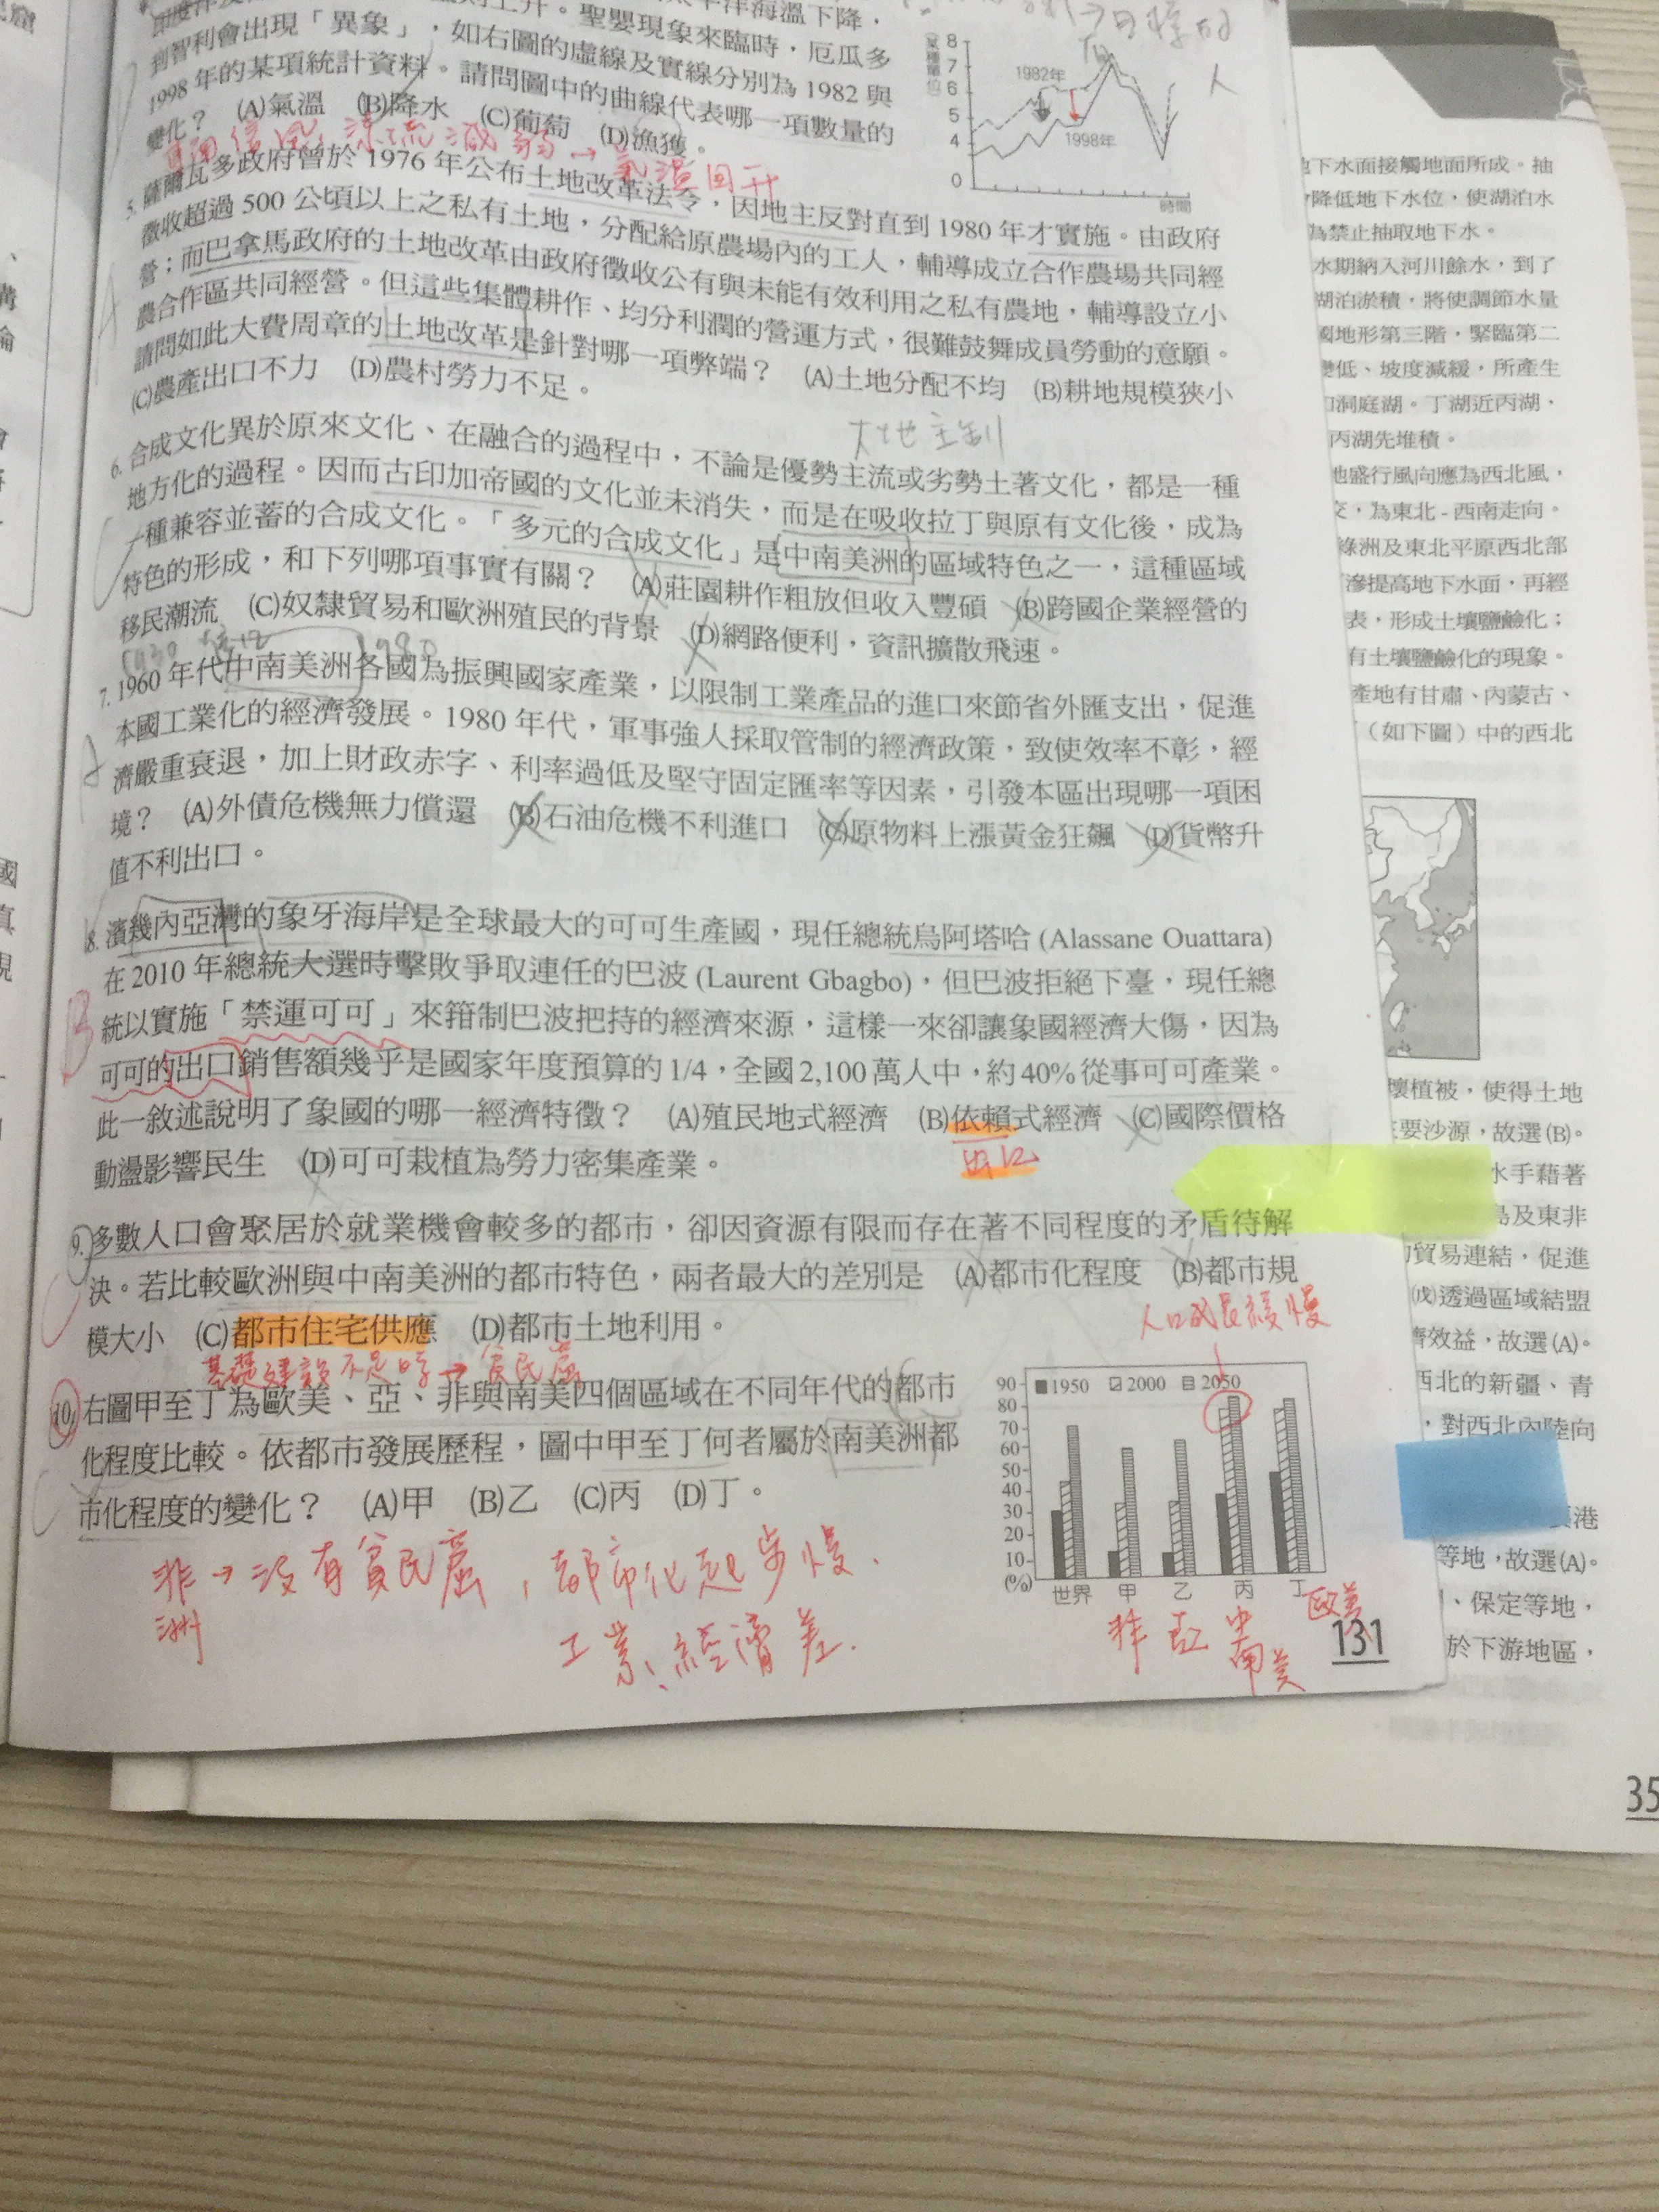 到智利會出現「異象」，如右圖的虛線及實線分別為 1982 與
1998 年的某項統計資料。請問圖中的曲線代表哪一項數量的
變化？ (A)氣溫 (B)降水 (C)葡萄 (D)漁獲。
8
7
6
5
4
0
1982年
1998年
時間
涼流減弱→氣溫回升
5. 薩爾瓦多政府曾於 1976 年公布土地改革法令，因地主反對直到 1980 年才實施。由政府
徵收超過 500 公頃以上之私有土地，分配給原農場內的工人，輔導成立合作農場共同經
營；而巴拿馬政府的土地改革由政府徵收公有與未能有效利用之私有農地，輔導設立小
農合作區共同經營。但這些集體耕作、均分利潤的營運方式，很難鼓舞成員勞動的意願。
請問如此大費周章的土地改革是針對哪一項弊端？ (A)土地分配不均 (B)耕地規模狹小
(C)農產出口不力 (D)農村勞力不足。
大地主制
6. 合成文化異於原來文化、在融合的過程中，不論是優勢主流或劣勢土著文化，都是一種
地方化的過程。因而古印加帝國的文化並未消失，而是在吸收拉丁與原有文化後，成為
一種兼容並蓄的合成文化。「多元的合成文化」是中南美洲的區域特色之一，這種區域
特色的形成，和下列哪項事實有關？ (A)莊園耕作粗放但收入豐碩 (B)跨國企業經營的
移民潮流 (C)奴隸貿易和歐洲殖民的背景 (D)網路便利，資訊擴散飛速。
7. 1960 年代中南美洲各國為振興國家產業，以限制工業產品的進口來節省外匯支出，促進
本國工業化的經濟發展。1980 年代，軍事強人採取管制的經濟政策，致使效率不彰，經
濟嚴重衰退，加上財政赤字、利率過低及堅守固定匯率等因素，引發本區出現哪一項困
境？ (A)外債危機無力償還 (B)石油危機不利進口 (C)原物料上漲黃金狂飆 (D)貨幣升
值不利出口。
8. 濱幾內亞灣的象牙海岸是全球最大的可可生產國，現任總統烏阿塔哈 (Alassane Ouattara)
在 2010 年總統大選時擊敗爭取連任的巴波 (Laurent Gbagbo)，但巴波拒絕下臺，現任總
統以實施「禁運可可」來箝制巴波把持的經濟來源，這樣一來卻讓象國經濟大傷，因為
B
可可的出口銷售額幾乎是國家年度預算的 1/4，全國 2,100 萬人中，約 40% 從事可可產業。
此一敘述說明了象國的哪一經濟特徵？ (A)殖民地式經濟 (B)依賴式經濟 (C)國際價格
動盪影響民生 (D)可可栽植為勞力密集產業。
出口
9. 多數人口會聚居於就業機會較多的都市，卻因資源有限而存在著不同程度的矛盾待解
決。若比較歐洲與中南美洲的都市特色，兩者最大的差別是 (A)都市化程度 (B)都市規
模大小 (C)都市住宅供應 (D)都市土地利用。
人口成長緩慢
基礎建設不足時→貧民窟
10. 右圖甲至丁為歐美、亞、非與南美四個區域在不同年代的都市
化程度比較。依都市發展歷程，圖中甲至丁何者屬於南美洲都
市化程度的變化？ (A)甲 (B)乙 (C)丙 (D)丁。
1950 2000 2050
90
80
70
60
50
40
30
20
10
(%)
世界 甲 乙 丙 丁
非 亞 中南美 歐美
非洲→沒有貧民窟，都市化起步慢、
工業、經濟差.
131
地下水面接觸地面所成。抽
降低地下水位，使湖泊水
為禁止抽取地下水。
水期納入河川餘水，到了
湖泊淤積，將使調節水量
國地形第三階，緊臨第二
變低、坡度減緩，所產生
洞庭湖。丁湖近丙湖，
丙湖先堆積。
地盛行風向應為西北風，
，為東北-西南走向。
綠洲及東北平原西北部
滲提高地下水面，再經
表，形成土壤鹽鹼化；
有土壤鹽鹼化的現象。
產地有甘肅、內蒙古、
（如下圖）中的西北
壞植被，使得土地
主要沙源，故選(B)。
水手藉著
島及東非
貿易連結，促進
(戊)透過區域結盟
濟效益，故選(A)。
西北的新疆、青
，對西北內陸向
港
等地，故選(A)。
、保定等地，
於下游地區，
35